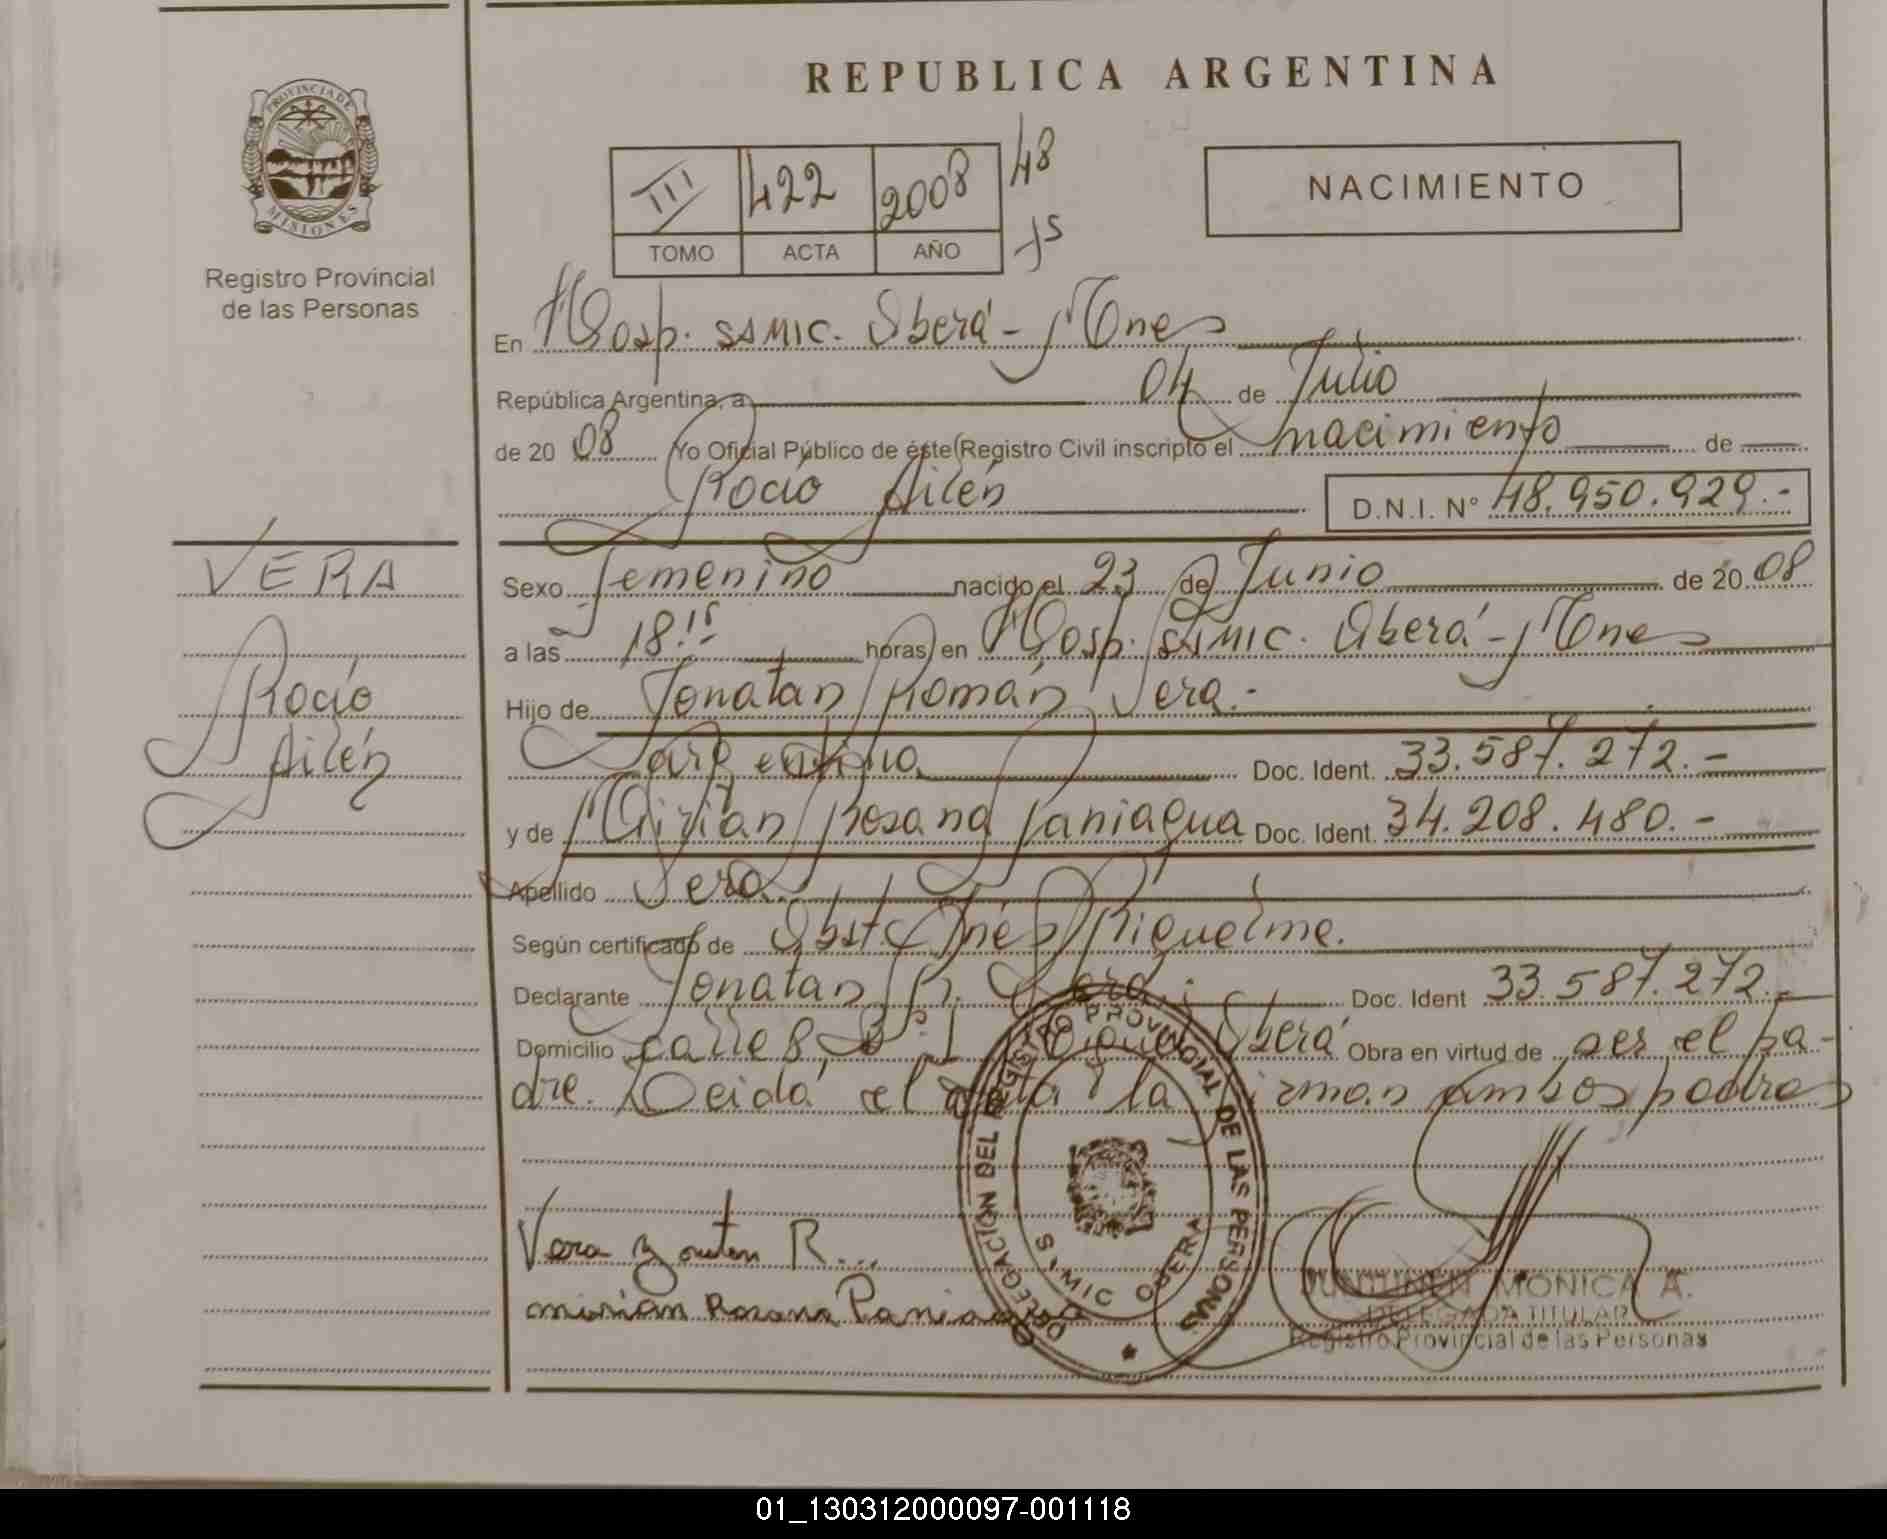 REPUBLICA ARGENTINA
PROVINCIA DE
MISIONES
Registro Provincial
de las Personas
III 422 2008 48
TOMO ACTA AÑO
NACIMIENTO
En Hosp. SAMIC. Oberá - Mnes
República Argentina, a 04 de Julio
de 2008 Yo Oficial Público de éste Registro Civil inscripto el nacimiento de
Rocío Ailén D.N.I. N° 48.950.929.-
VERA
Rocío
Ailén
Sexo femenino nacido el 23 de Junio de 2008
a las 18:15 horas en Hosp. SAMIC. Oberá - Mnes
Hijo de Jonatan Román Vera.-
argentina Doc. Ident. 33.587.272.-
y de Mirian Rosana Paniagua Doc. Ident. 34.208.480.-
Apellido Vera
Según certificado de Obst. Inés Riquelme.
Declarante Jonatan R. Vera.- Doc. Ident 33.587.272.-
Domicilio calle 8, Oberá Obra en virtud de ser el pa-
dre. Leida el acta la firman ambos padres
DELEGACIÓN DEL REGISTRO PROVINCIAL DE LAS PERSONAS
SAMIC OBERA
Vera Jonatan R...
mirian Rosana Paniagua
MONICA A.
DELEGADA TITULAR
Registro Provincial de las Personas
01_130312000097-001118